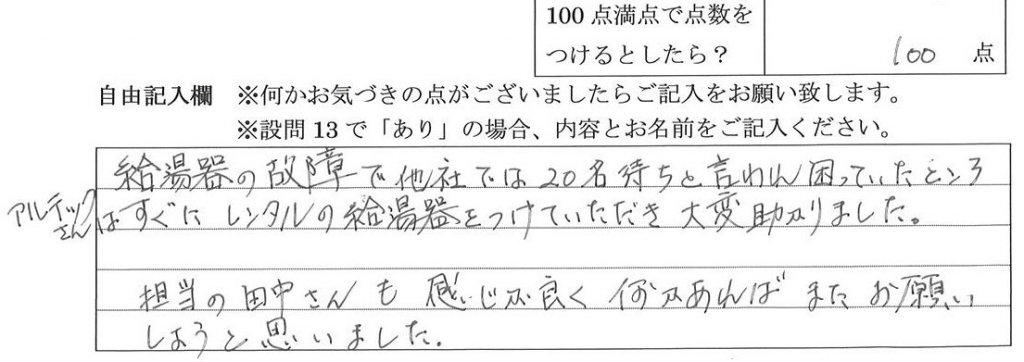 100点満点で点数を
つけるとしたら？
100 点
自由記入欄 ※何かお気づきの点がございましたらご記入をお願い致します。
※設問13で「あり」の場合、内容とお名前をご記入ください。
給湯器の故障で他社では20名待ちと言われ困っていたところ
アルテックさんはすぐに レンタルの給湯器をつけていただき 大変助かりました。
担当の田中さんも 感じが良く 何かあれば またお願い
しようと思いました。